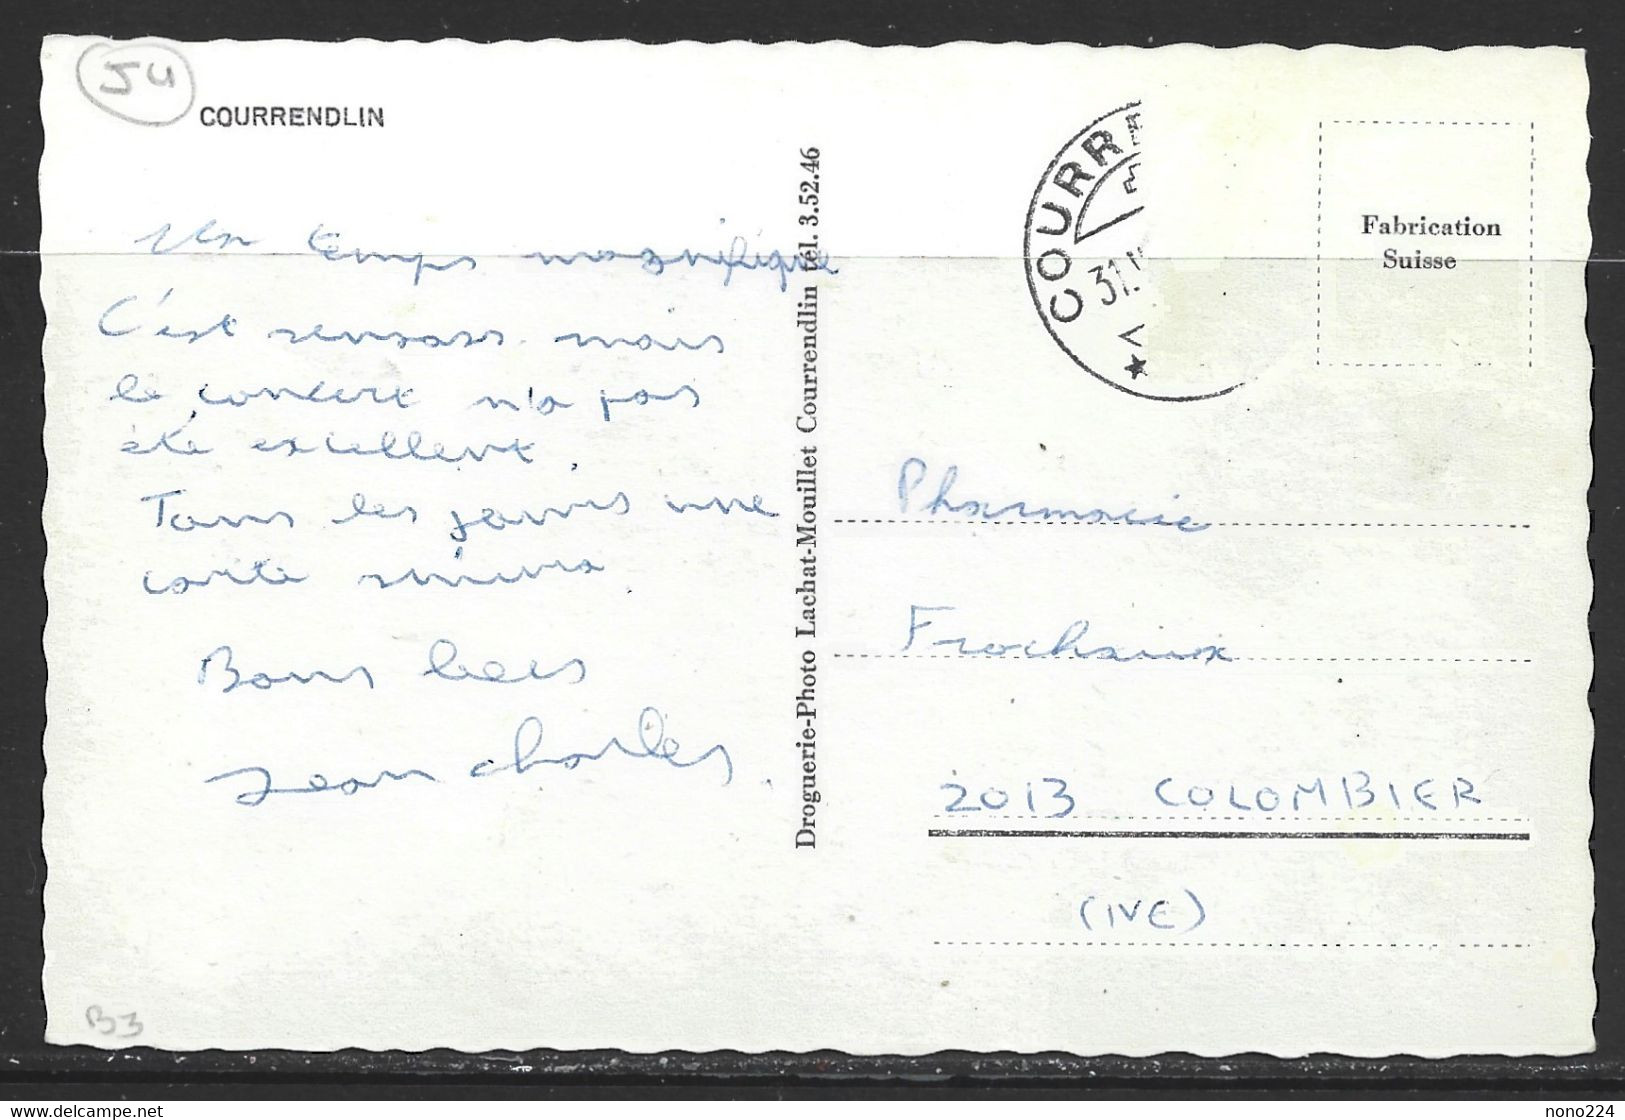 JU
COURRENDLIN
Un temps magnifique
C'est sensass. mais
le concert n'a pas
été excellent.
Tous les jours une
carte
Bons becs
Jean Charles.
Droguerie-Photo Lachat-Mouillet Courrendlin tél. 3.52.46
COURR
31.
Fabrication
Suisse
Pharmacie
Frochaux
2013 COLOMBIER
(NE)
B3
delcampe.net
nono224